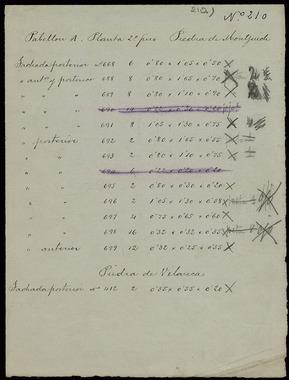 210)
Nº 210
Pabellon A. Planta 2º piso Piedra de Montjuich
Fachada posterior nº 668 6 0'80 x 1'05 x 0'50
" antº y posterior 688 8 0'80 x 1'05 x 0'70
" " " 689 8 0'80 x 1'10 x 0'75
" " " 690
" " " 691 8 1'05 x 1'30 x 0'75
" posterior 692 2 0'80 x 1'05 x 0'55
" " 693 2 0'80 x 1'10 x 0'75
" " 694 6 0'22 x 0'20 x 0'20
" " 695 2 0'80 x 0'30 x 0'20
" " 696 2 1'05 x 1'30 x 0'58
" " 697 4 0'75 x 0'65 x 0'60
" " 698 16 0'32 x 0'32 x 0'55
" anterior 699 12 0'32 x 0'25 x 0'55
Piedra de Velarca
Fachada posterior nº 412 2 0'55 x 0'55 x 0'20